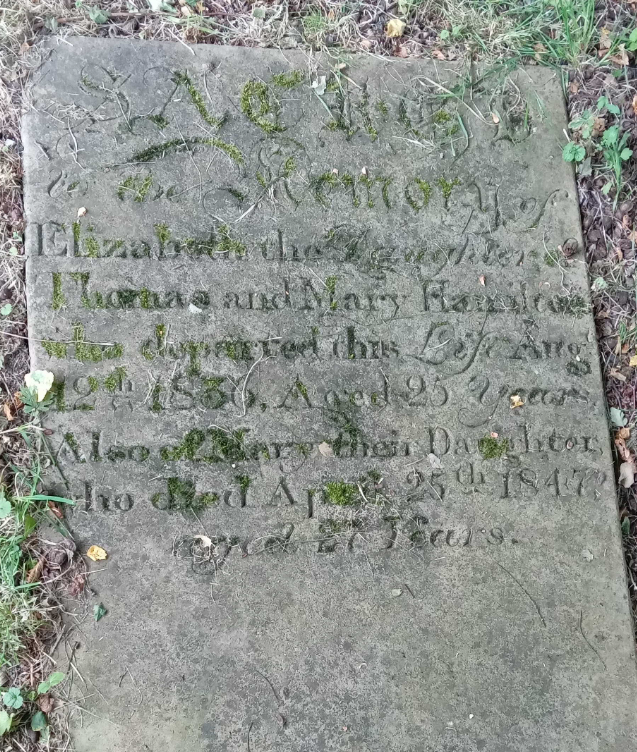 SACRED
to the Memory of
Elizabeth the Daughter of
Thomas and Mary Hamilton
who departed this Life Aug
12th 1836, Aged 25 Years
Also of Mary their Daughter
who died April 25th 1847
aged 27 Years.